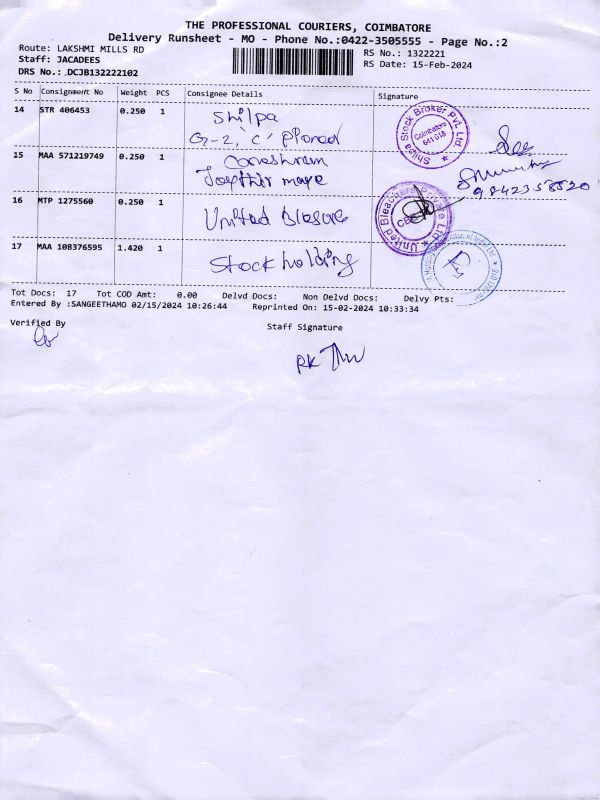 THE PROFESSIONAL COURIERS, COIMBATORE
Delivery Runsheet - MO - Phone No.:0422-3505555 - Page No.:2
Route: LAKSHMI MILLS RD
RS No.: 1322221
Staff: JACADEES
RS Date: 15-Feb-2024
DRS No.: DCJB132222102
S No Consignment No Weight PCS Consignee Details Signature
14 STR 406453 0.250 1 Shilpa
G-2, 'C'
Shilpa Stock Broker Pvt. Ltd
Coimbatore
641 018
15 MAA 571219749 0.250 1
16 MTP 1275560 0.250 1 United
United Bleachers Private Ltd
CBE
17 MAA 108376595 1.420 1 Stock holding
Tot Docs: 17 Tot COD Amt: 0.00 Delvd Docs: Non Delvd Docs: Delvy Pts:
Entered By :SANGEETHAMO 02/15/2024 10:26:44 Reprinted On: 15-02-2024 10:33:34
Verified By
Staff Signature